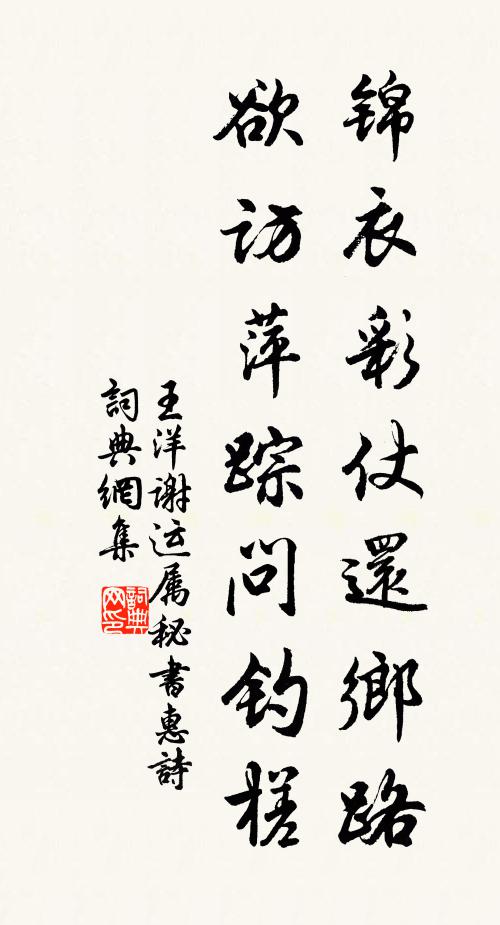 锦衣彩仗還鄉路
欲访萍踪問钓槎
王洋谢运属秘書惠詩
詞典網集
詞典
网印